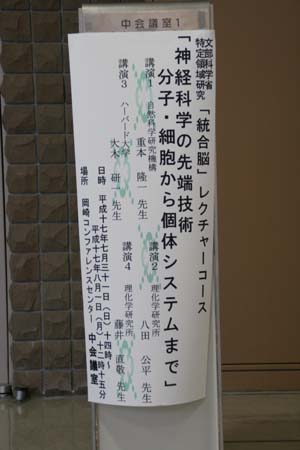 中会議室1
文部科学省
特定領域研究
「統合脳」レクチャーコース
「神経科学の先端技術
分子・細胞から個体システムまで」
講演1 自然科学研究機構
重本 隆一 先生
講演2 理化学研究所
八田 公平 先生
講演3 ハーバード大学
大木 研一 先生
講演4 理化学研究所
藤井 直敬 先生
日時 平成十七年七月三十一日(日)十四時~
平成十七年八月一日(月)十二時十五分
場所 岡崎コンファレンスセンター 中会議室